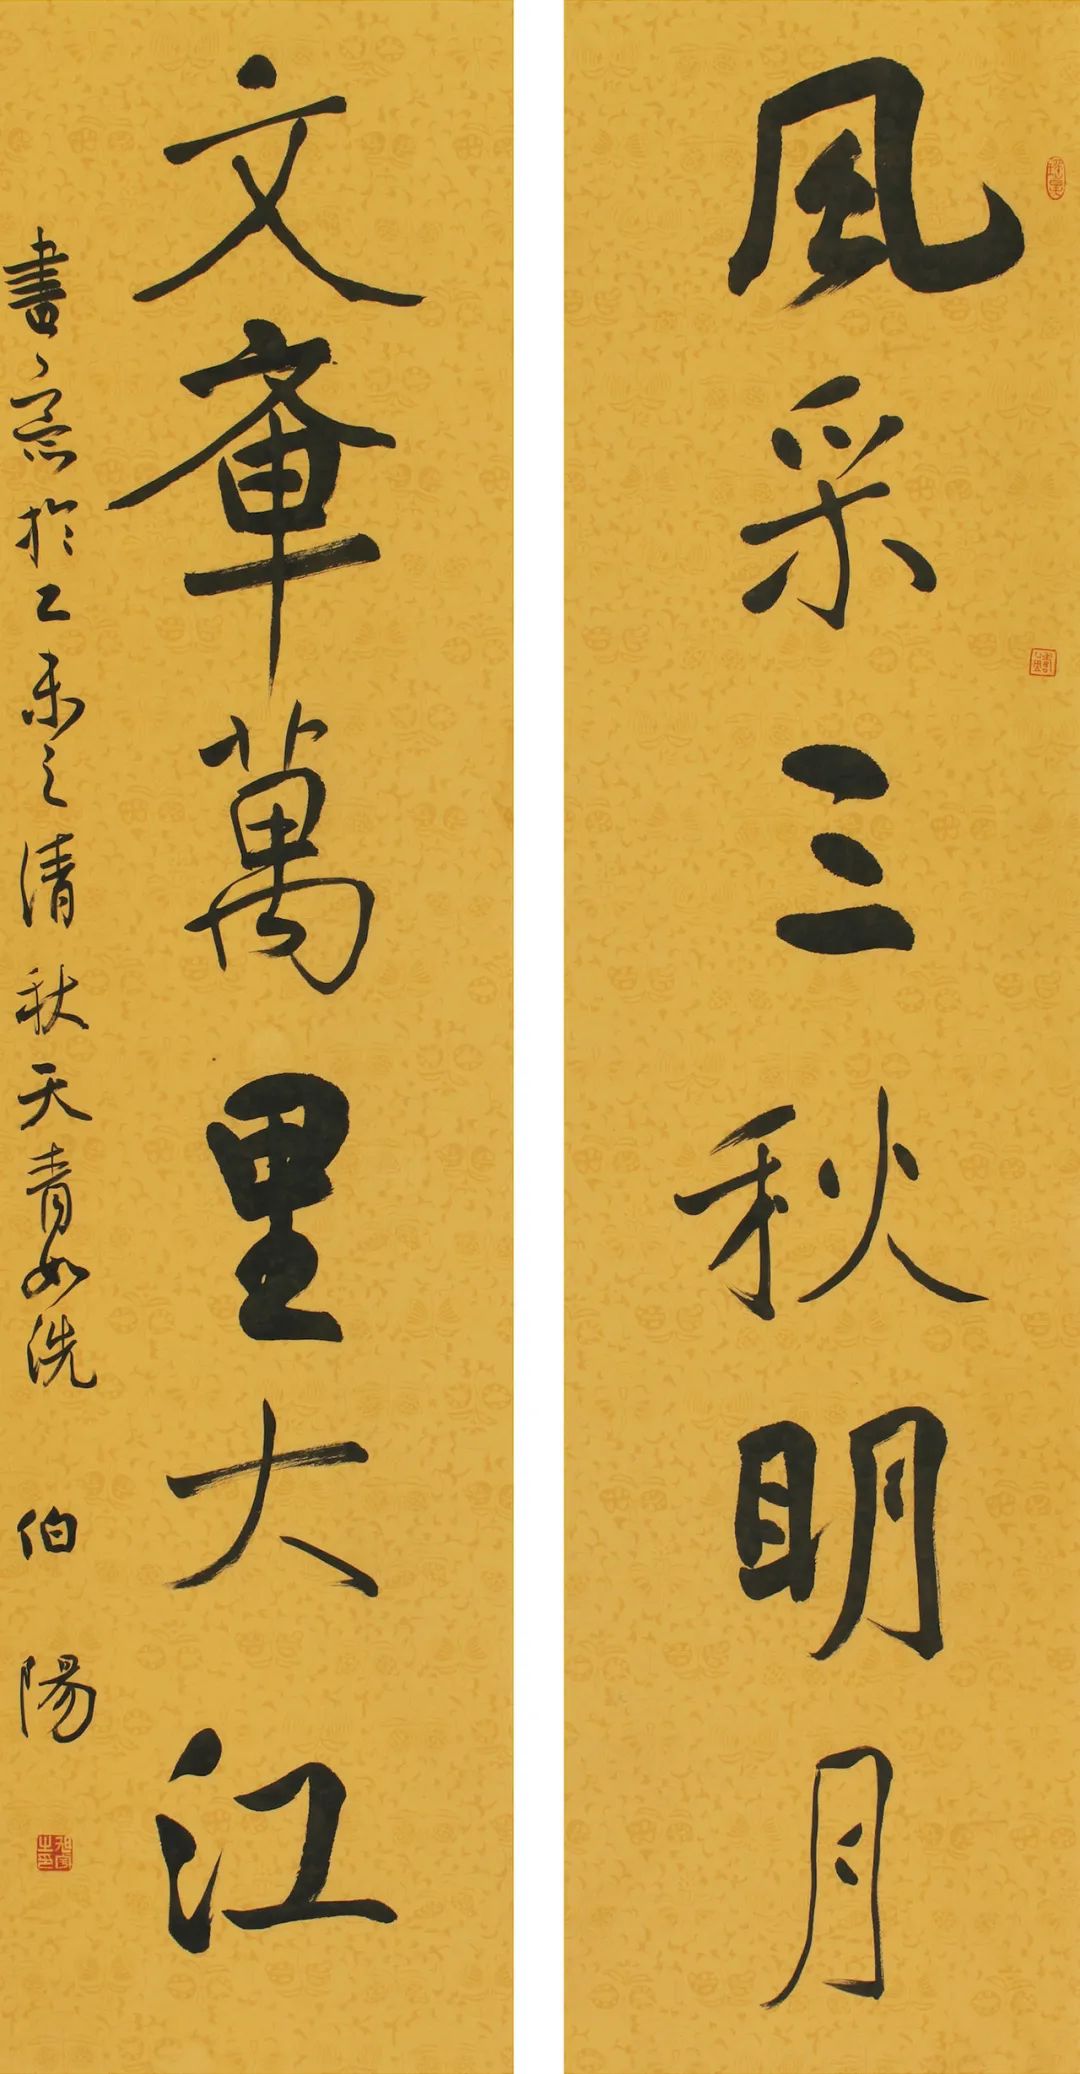 風采三秋明月
文章萬里大江
書以言志於乙未之清秋天青如洗 伯陽